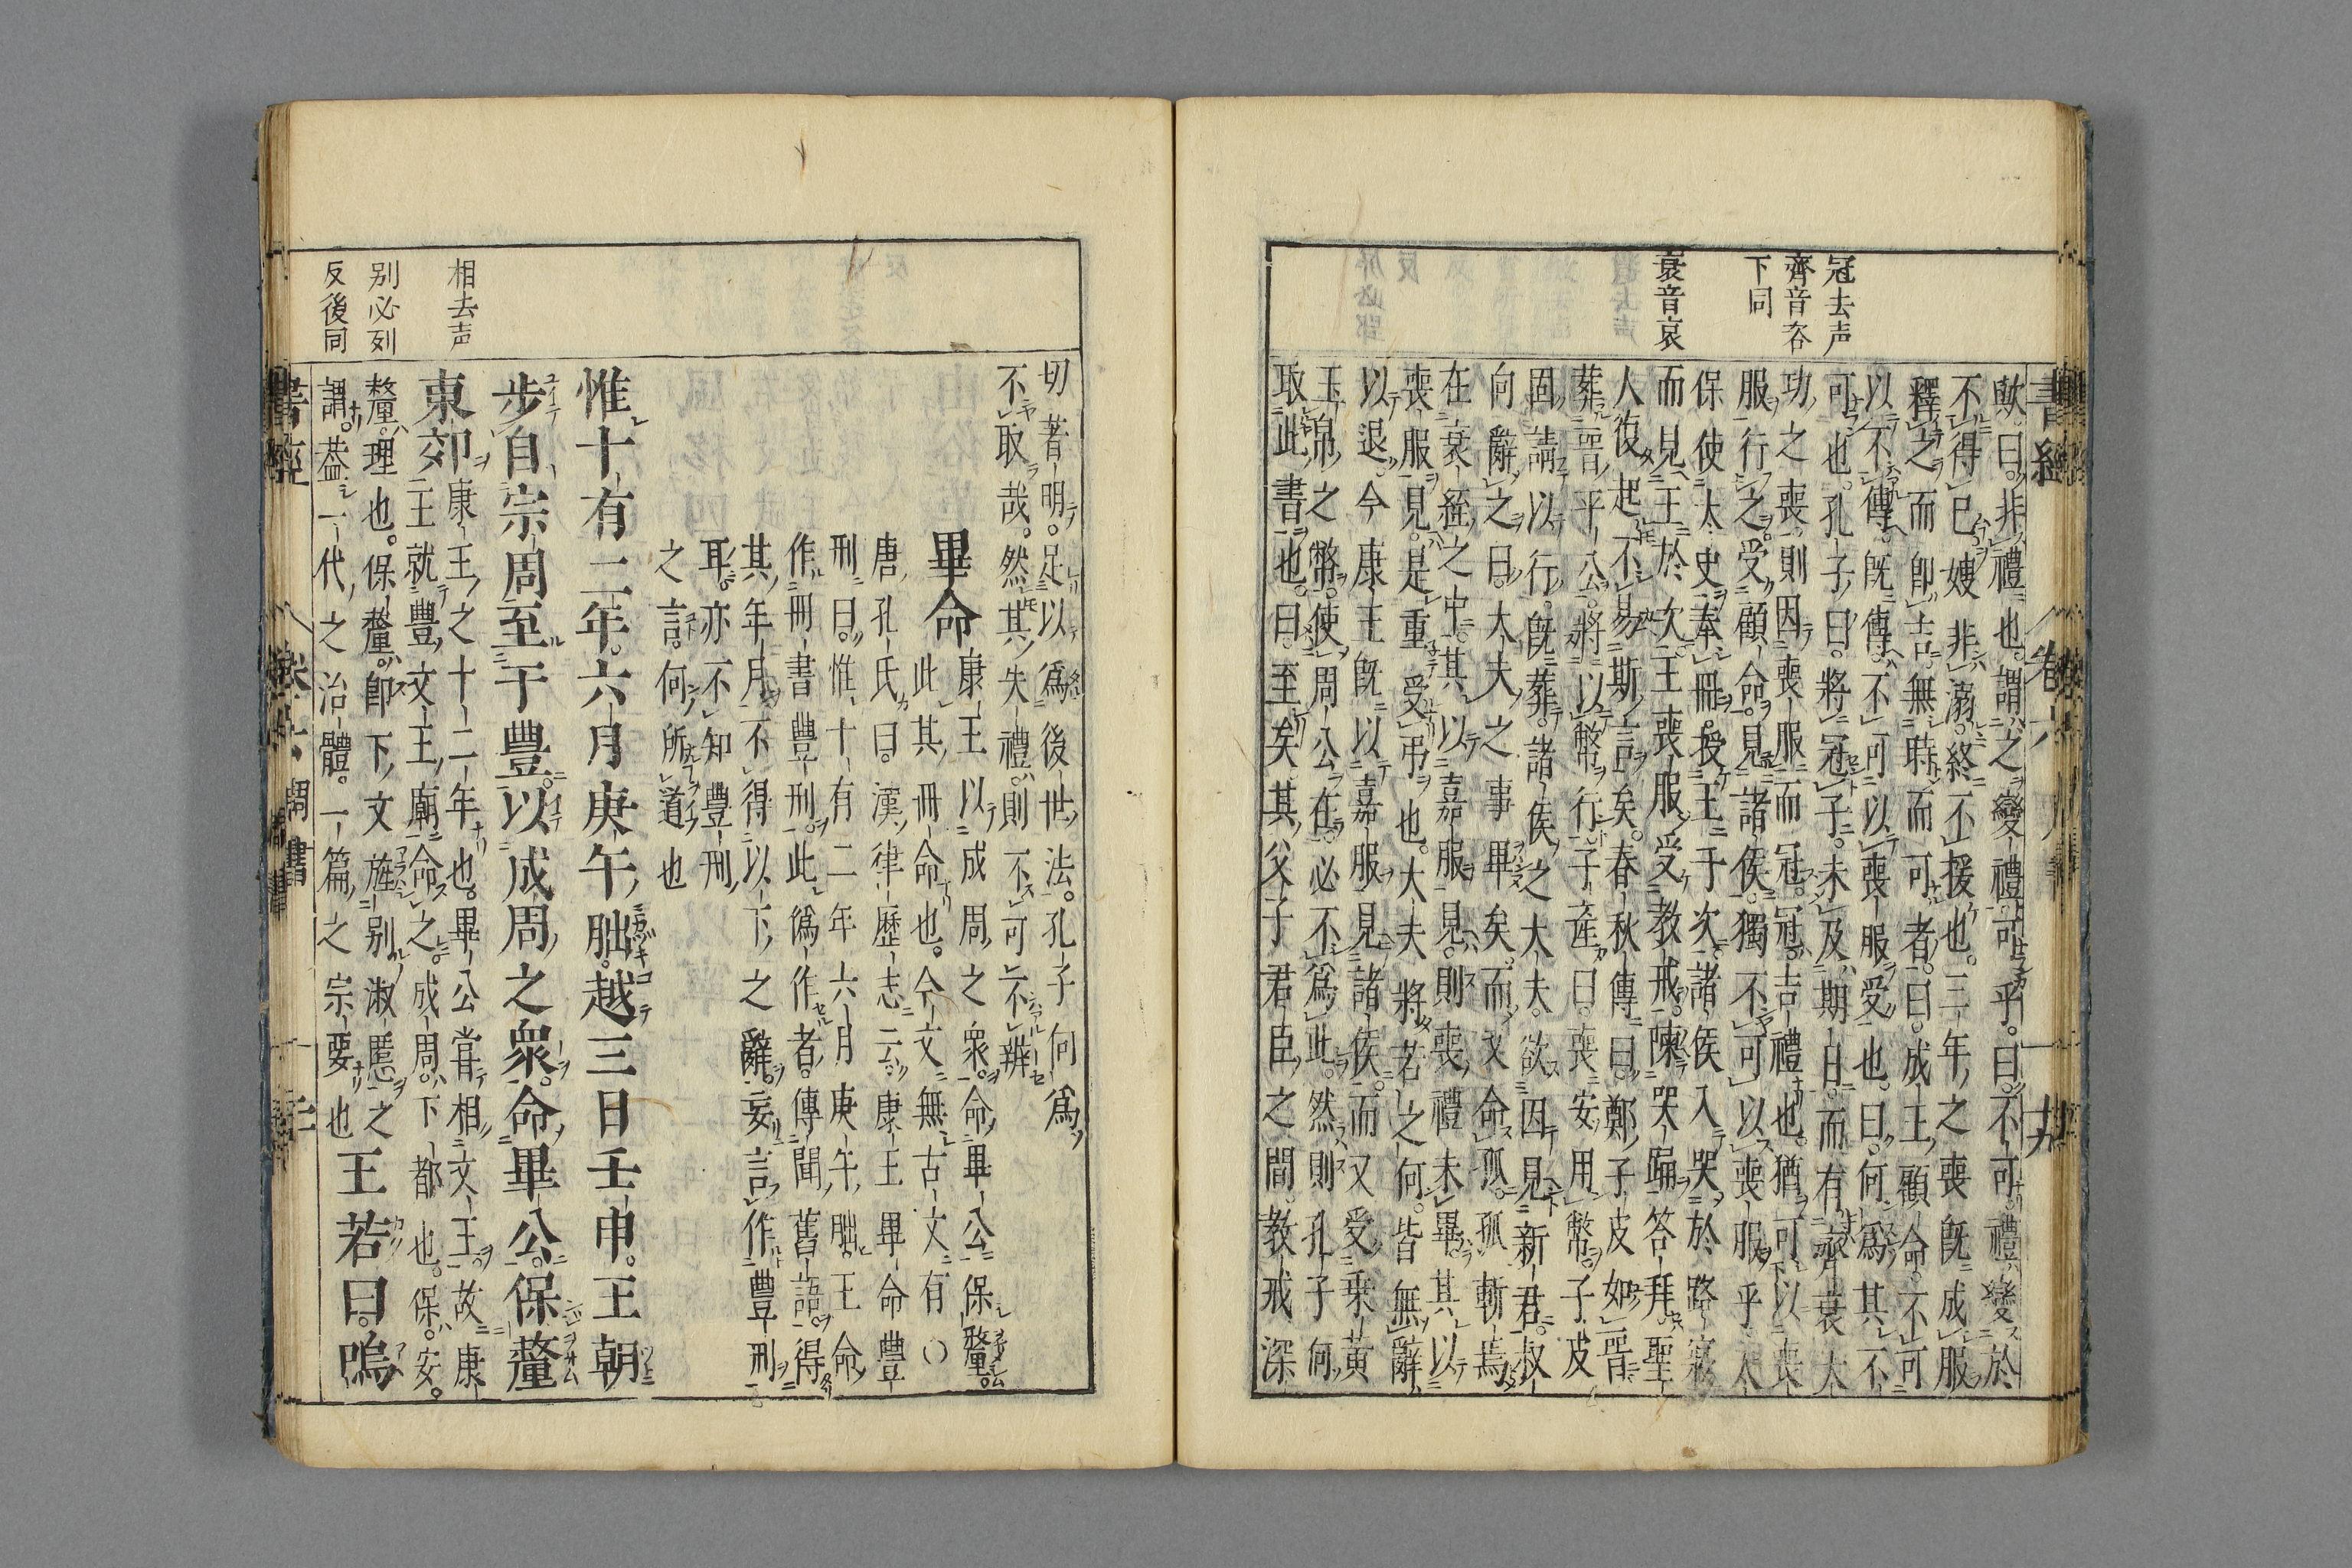 冠去声
齊音咨
下同
衰音哀
書經
卷六
周書
十九
歟曰非禮也謂之變禮可乎曰不可禮變於
不得已嫂非溺終不援也三年之喪旣成服
釋之而卽吉無時而可者曰成王顧命不可
以不傳旣傳不可以喪服受也曰何爲其不
可也孔子曰將冠子未及期日而有齊衰大
功之喪則因喪服而冠冠吉禮也猶可以喪
服行之受顧命見諸侯獨不可以喪服乎太
保使太史奉冊授王于次諸侯入哭於路寢
而見王於次王喪服受教戒陳哭踊答拜聖
人復起不易斯言矣春秋傳曰鄭子皮如晉
葬晉平公將以幣行子產曰喪安用幣子皮
固請以行旣葬諸侯之大夫欲因見新君叔
向辭之曰大夫之事畢矣而又命孤孤斬焉
在衰絰之中其以嘉服見則喪禮未畢其以
喪服見是重受弔也大夫將若之何皆無辭
以退今康王旣以嘉服見諸侯而又受乘黃
玉帛之幣使周公在必不爲此然則孔子何
取此書也曰至矣其父子君臣之間教戒深
相去声
別必列
反後同
切著明足以爲後世法孔子何爲
不取哉然其失禮則不可不辨
畢命 康王以成周之衆命畢公保釐
此其冊命也今文無古文有○
唐孔氏曰漢律歷志云康王畢命豐
刑曰惟十有二年六月庚午朏王命
作冊書豐刑此僞作者傳聞舊語得
其年月不得以下之辭妄言作豐刑
耳亦不知豐刑
之言何所道也
惟十有二年六月庚午朏越三日壬申王朝
步自宗周至于豐以成周之衆命畢公保釐
東郊 康王之十二年也畢公嘗相文王故康
王就豐文王廟命之成周下都也保安
釐理也保釐卽下文旌別淑慝之
謂蓋一代之治體一篇之宗要也 王若曰嗚
書經
卷六
周書
二十